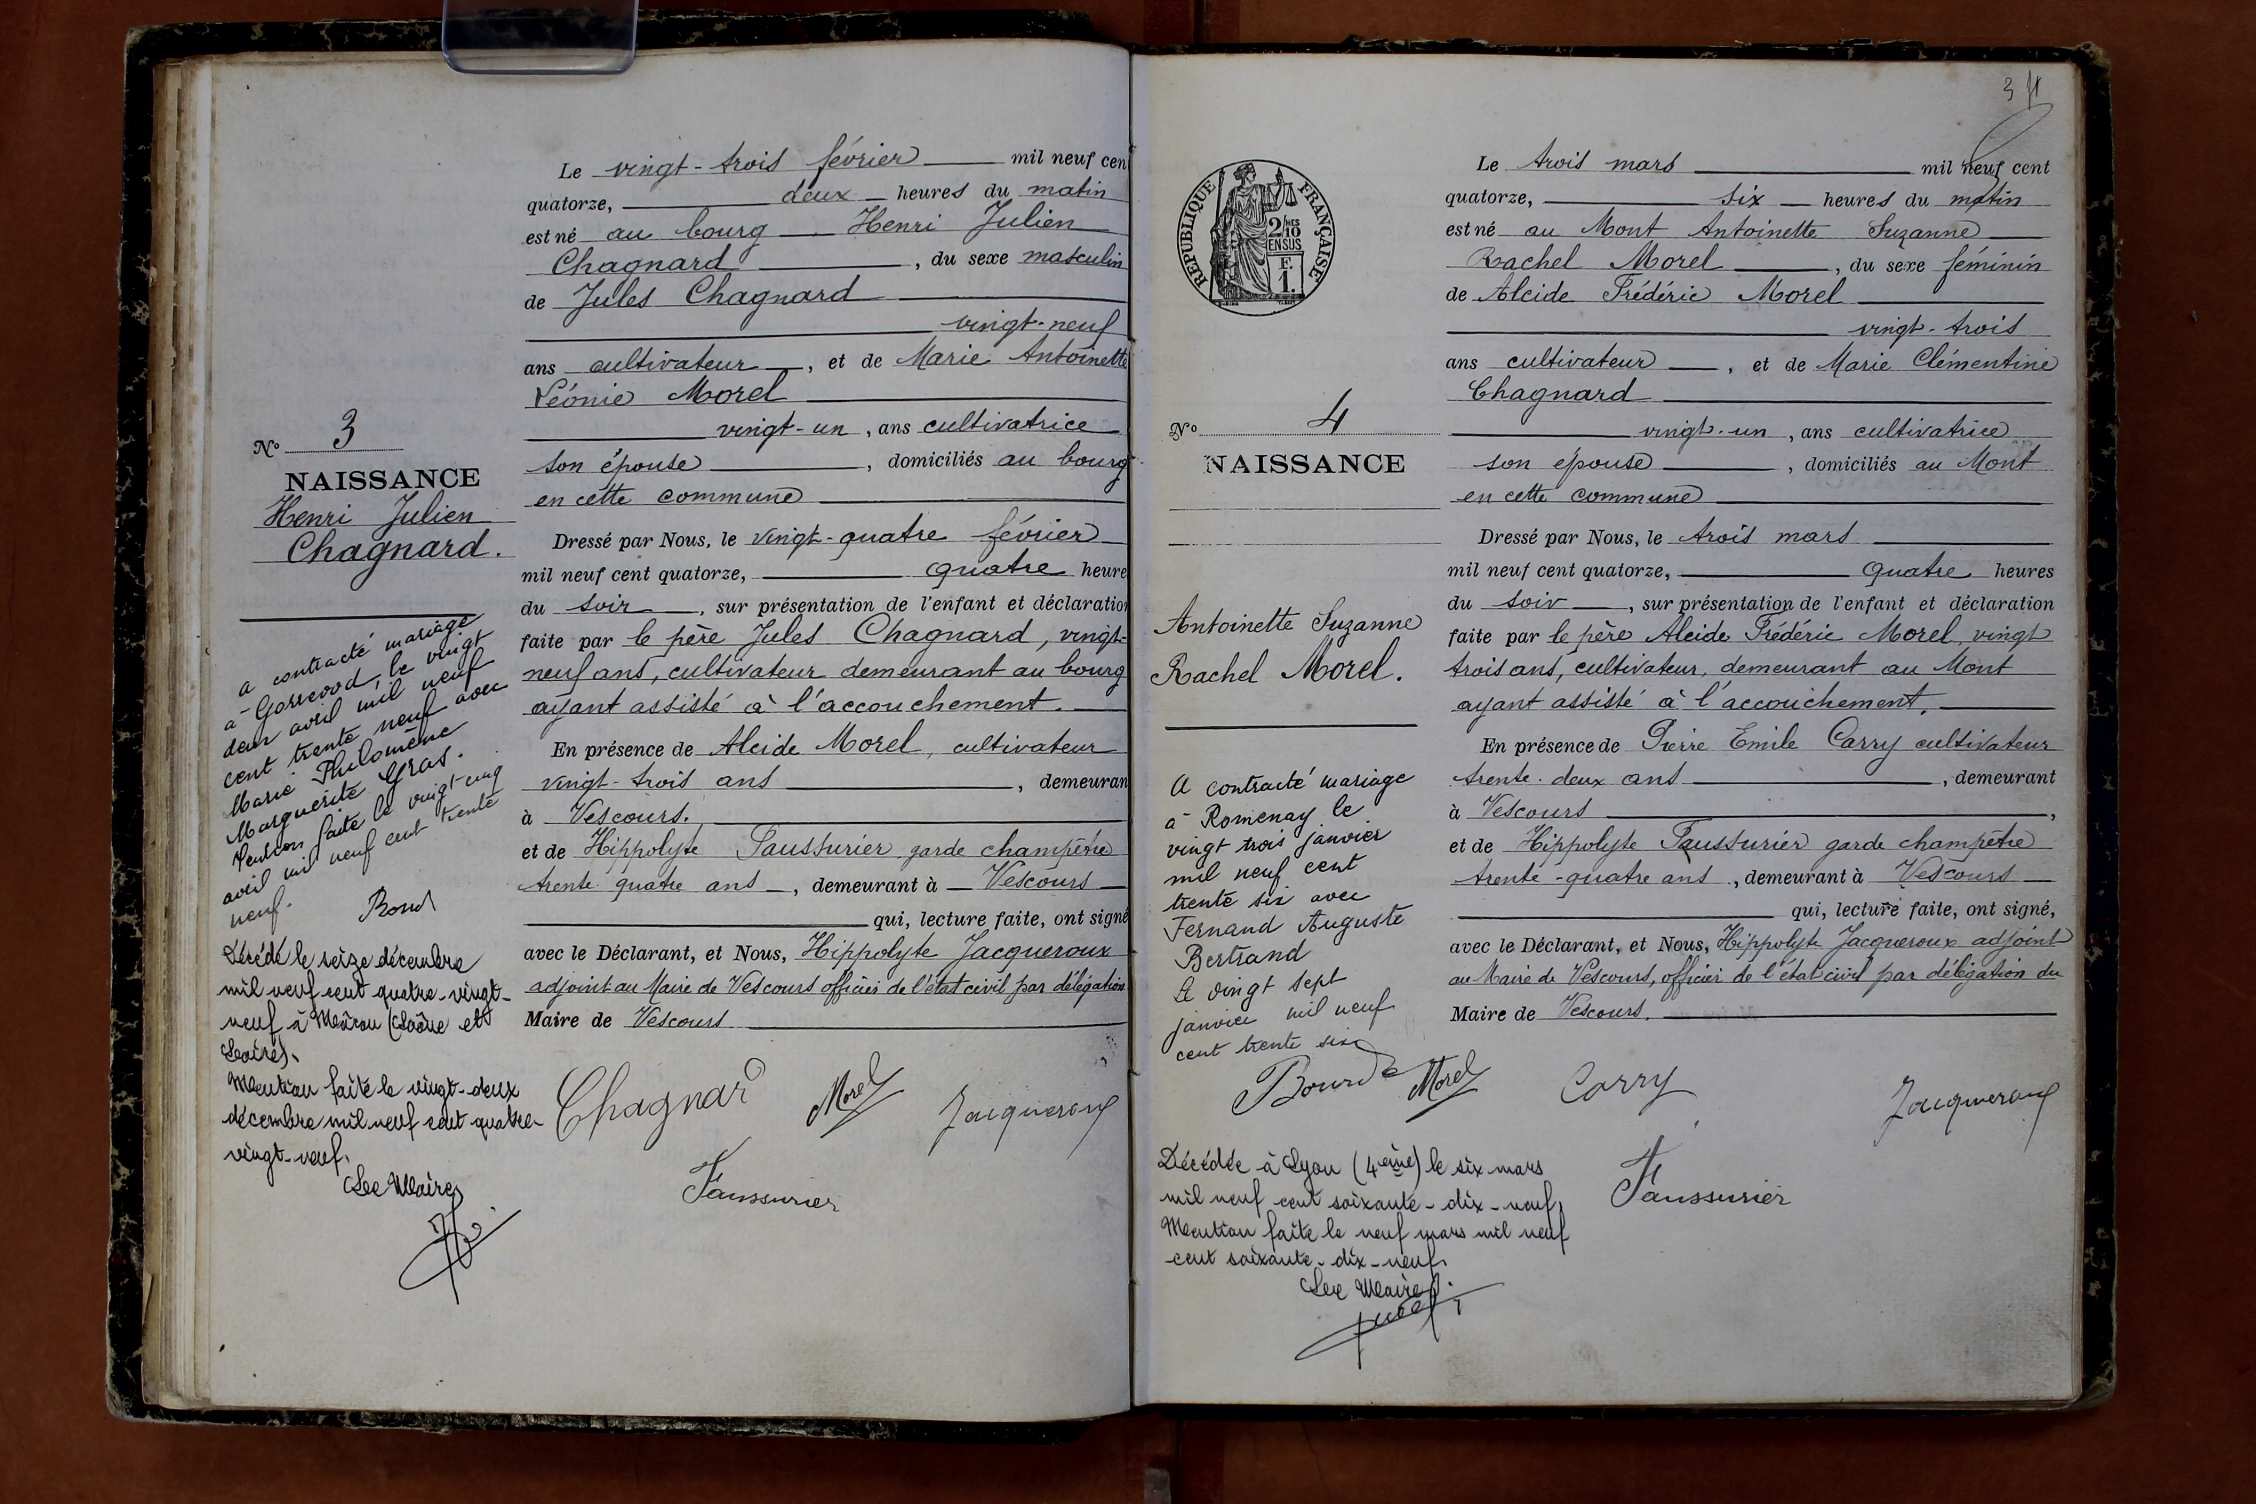 Le vingt-trois février mil neuf cen
quatorze, deux heures du matin
est né au bourg Henri Julien
Chagnard, du sexe masculin
de Jules Chagnard
vingt-neuf
ans cultivateur, et de Marie Antoinette
Léonie Morel
vingt-un, ans cultivatrice
son épouse, domiciliés au bourg
en cette commune
Dressé par Nous, le vingt-quatre février
mil neuf cent quatorze, quatre heure
du soir, sur présentation de l'enfant et déclaration
faite par le père Jules Chagnard, vingt-
neuf ans, cultivateur demeurant au bourg
ayant assisté à l'accouchement.
En présence de Alcide Morel, cultivateur
vingt-trois ans, demeuran
à Vescours.
et de Hippolyte Faussurier garde champêtre
trente quatre ans, demeurant à Vescours
qui, lecture faite, ont signé
avec le Déclarant, et Nous, Hippolyte Jacqueroux
adjoint au Maire de Vescours officier de l'état civil par délégation
Maire de Vescours
Chagnard Morel Jacqueroux
Faussurier
N° 3
NAISSANCE
Henri Julien
Chagnard.
a contracté mariage
à Gorrevod, le vingt
deux avril mil neuf
cent trente neuf avec
Marie Philomène
Marguerite Gras.
Mention faite le vingt-cinq
avril mil neuf cent trente
neuf.
Décédé le seize décembre
mil neuf cent quatre-vingt-
neuf à Mâcon (Saône et
Loire).
Mention faite le vingt-deux
décembre mil neuf cent quatre-
vingt-neuf.
Le Maire
34
RÉPUBLIQUE FRANÇAISE
2/10 EN SUS
F.
1.
Le trois mars mil neuf cent
quatorze, six heures du matin
est né au Mont Antoinette Suzanne
Rachel Morel, du sexe féminin
de Alcide Frédéric Morel
vingt-trois
ans cultivateur, et de Marie Clémentine
Chagnard
vingt-un, ans cultivatrice
son épouse, domiciliés au Mont
en cette commune
Dressé par Nous, le trois mars
mil neuf cent quatorze, quatre heures
du soir, sur présentation de l'enfant et déclaration
faite par le père Alcide Frédéric Morel, vingt
trois ans, cultivateur, demeurant au Mont
ayant assisté à l'accouchement.
En présence de Pierre Emile Carry cultivateur
trente-deux ans, demeurant
à Vescours,
et de Hippolyte Faussurier garde champêtre
trente-quatre ans, demeurant à Vescours
qui, lecture faite, ont signé,
avec le Déclarant, et Nous, Hippolyte Jacqueroux adjoint
au Maire de Vescours, officier de l'état civil par délégation du
Maire de Vescours.
Morel Carry Jacqueroux
Faussurier
N° 4
NAISSANCE
Antoinette Suzanne
Rachel Morel.
A contracté mariage
à Romenay le
vingt trois janvier
mil neuf cent
trente six avec
Fernand Auguste
Bertrand
Le vingt sept
janvier mil neuf
cent trente six
Décédée à Lyon (4ème) le six mars
mil neuf cent soixante-dix-neuf,
Mention faite le neuf mars mil neuf
cent soixante-dix-neuf.
Le Maire